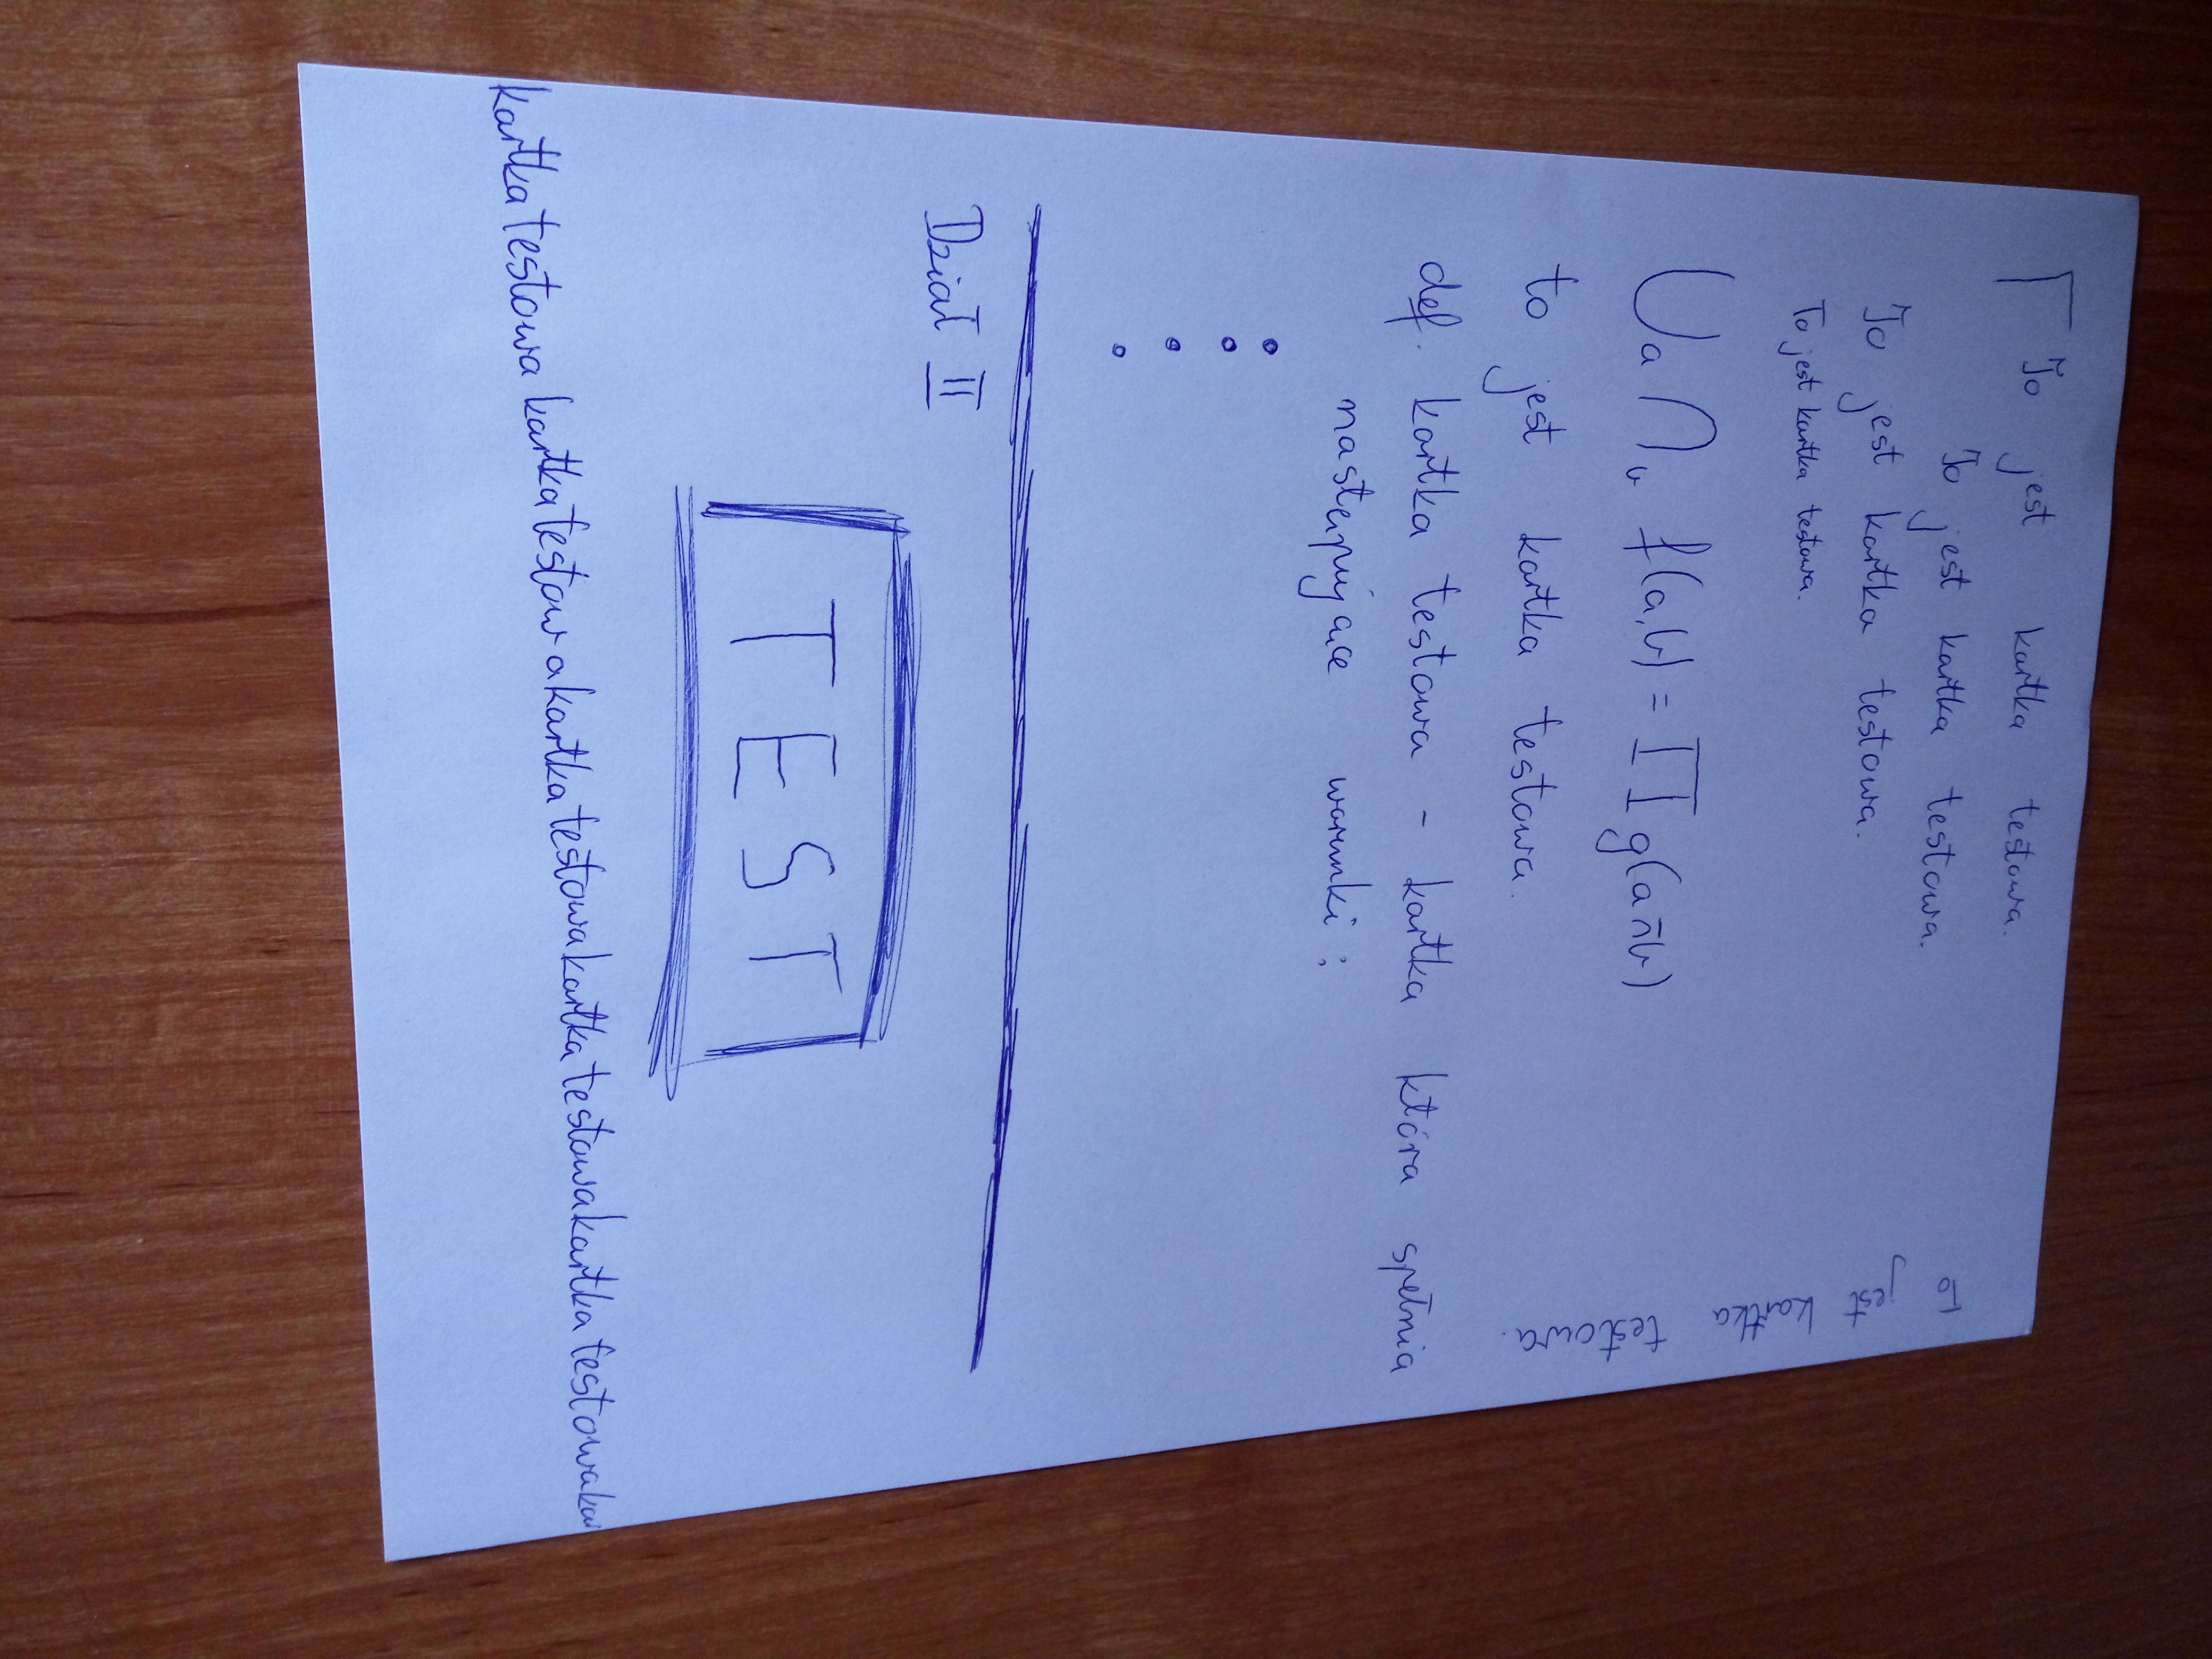 To jest kartka testowa.
To jest kartka testowa.
To jest kartka testowa.
To jest kartka testowa.
⋃a ⋂b f(a,b) = ∏ g(a
to jest kartka testowa.
def. kartka testowa - kartka która spełnia
następujące warunki :
•
•
•
•
To
jest
kartka
testowa.
Dział II
TEST
kartka testowa kartka testowa kartka testowa kartka testowa kartka testowa kartka testowa ka